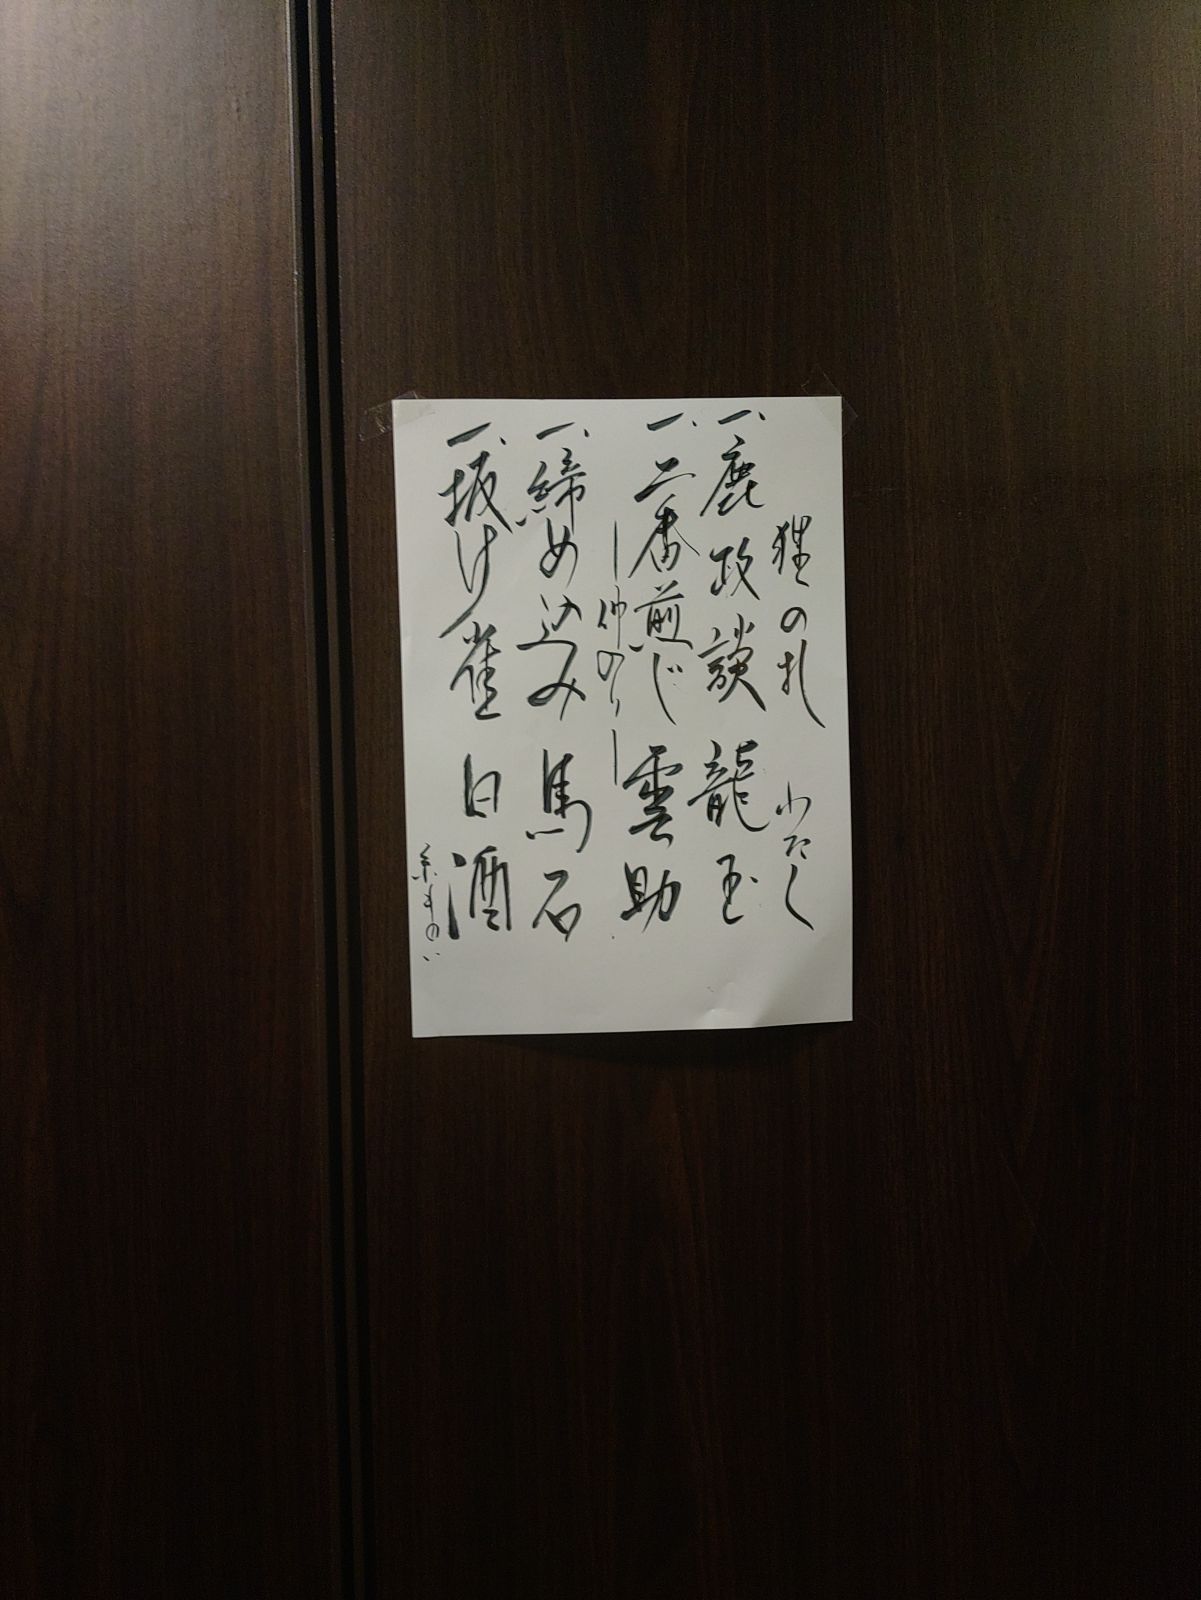 狸の札 小たし
一、鹿政談 龍玉
一、二番煎じ 雲助
―仲のり―
一、締め込み 馬石
一、抜け雀 白酒